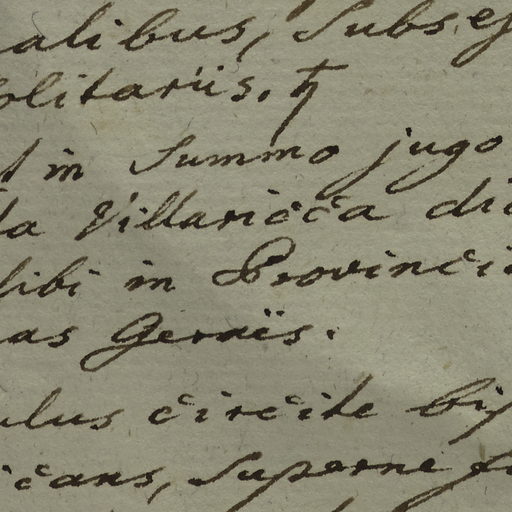 alibus, Subseq
olitariis. ♄
in Summo jugo
da Villaricca di
libi in Provinci
as Geraës.
ulus circite bip
icans, Superne